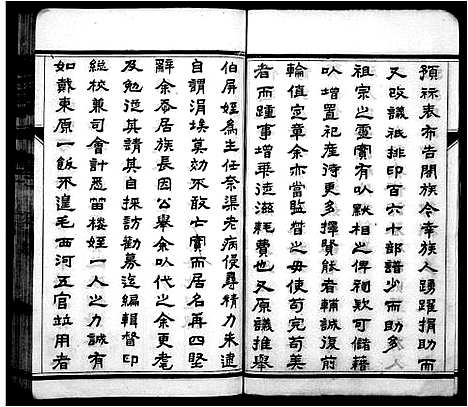 預祘表布告闔族今幸族人踴躍捐助而
又改議祗排印百六十部譜少而助多
祖宗之靈實有以默相之俾剞欵可儲藉
以增置祀產待更多擇賢能者輔誠復前
輪值定章余亦當監督之毋使苟完苟美
者而踵事增華徒滋耗費也又原議推舉
伯屏姪為主任奈渠老病侵尋精力未逮
自謂涓埃莫効不敢亡實而居名再四堅
辭余忝居族長因公舉余以代之余更耄
及勉從其請其自採訪勸募迄編輯督印
總校兼司會計悉笛樓姪一人之力誠有
如戴東原一飯不遑毛西河五官竝用者